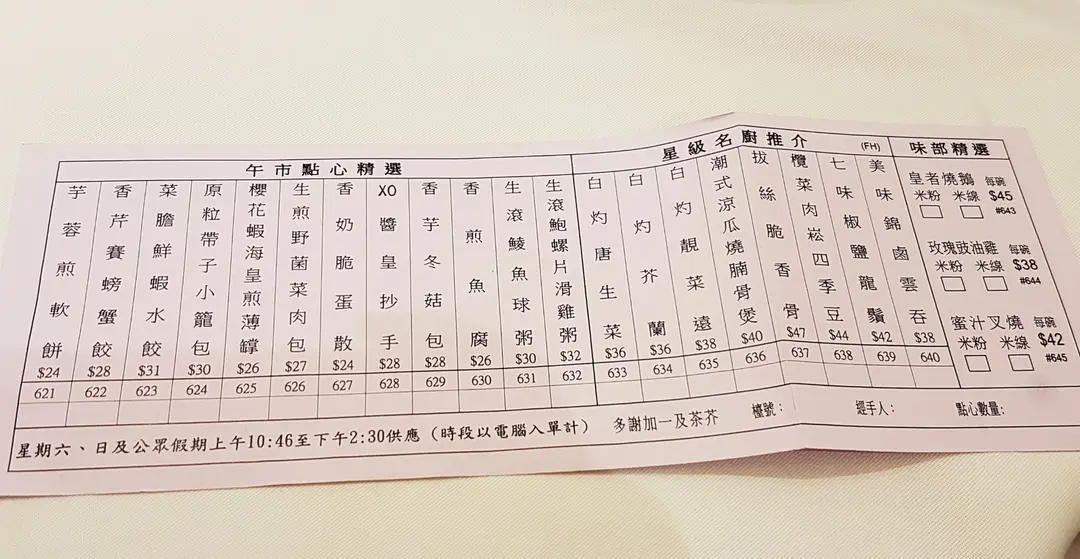 午市點心精選
芋蓉煎軟餅
$24
621
香芹賽螃蟹餃
$28
622
菜膽鮮蝦水餃
$31
623
原粒帶子小籠包
$30
624
櫻花蝦海皇煎薄罉
$26
625
生煎野菌菜肉包
$27
626
香奶脆蛋散
$24
627
XO醬皇抄手
$28
628
香芋冬菇包
$28
629
香煎魚腐
$26
630
生滾鯪魚球粥
$30
631
生滾鮑螺片滑雞粥
$32
632
星級名廚推介
(FH)
白灼唐生菜
$36
633
白灼芥蘭
$36
634
白灼靚菜遠
$38
635
潮式涼瓜燒腩骨煲
$40
636
拔絲脆香骨
$47
637
欖菜肉崧四季豆
$44
638
七味椒鹽龍鬚
$42
639
美味錦鹵雲吞
$38
640
味部精選
皇者燒鵝 每碗
米粉 米線 $45
#643
玫瑰豉油雞 每碗
米粉 米線 $38
#644
蜜汁叉燒 每碗
米粉 米線 $42
#645
星期六、日及公眾假期上午10:46至下午2:30供應 (時段以電腦入單計) 多謝加一及茶芥 檯號: 經手人: 點心數量: